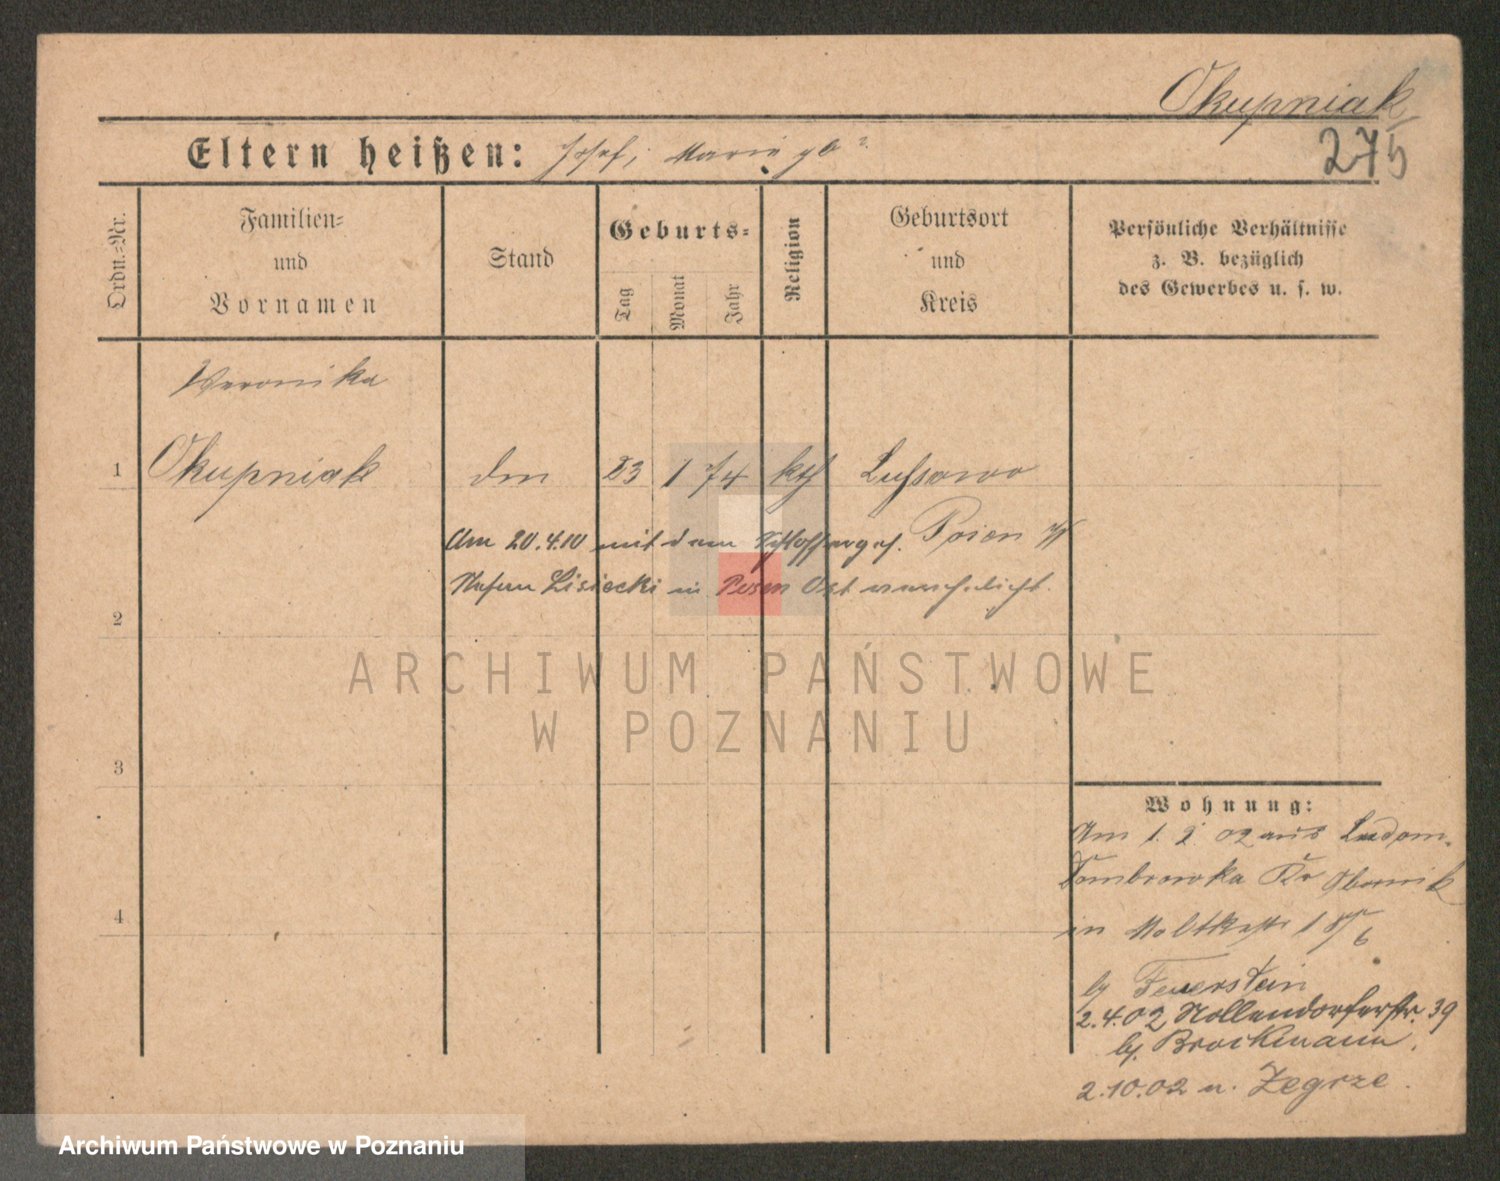 Okupniak
275
Eltern heißen: Josef, Marie gb ?
Ordn.=Nr.
Familien=
und
Vornamen
Stand
Geburts=
Tag
Monat
Jahr
Religion
Geburtsort
und
Kreis
Persönliche Verhältnisse
z. B. bezüglich
des Gewerbes u. s. w.
Veronika
1 Okupniak 23 1 74 kth Lussowo
Posen W
Am 20.4.10 mit dem Schlosserges.
Stefan Lisiecki in Posen Ost verehelicht.
2
ARCHIWUM PAŃSTWOWE
W POZNANIU
3
Wohnung:
Am 1. 2. 02 aus Ludom-
Dombrowka Kr Obornik
in Moltkestr
4
bj Feuerstein
2.4.02 Nollendorferstr. 39
bj. Brockmann.
2.10.02 n. Zegrze.
Archiwum Państwowe w Poznaniu